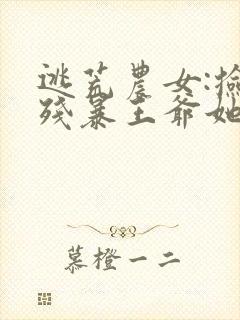 逃荒農女:撿
殘暴王爺她
慕橙一二